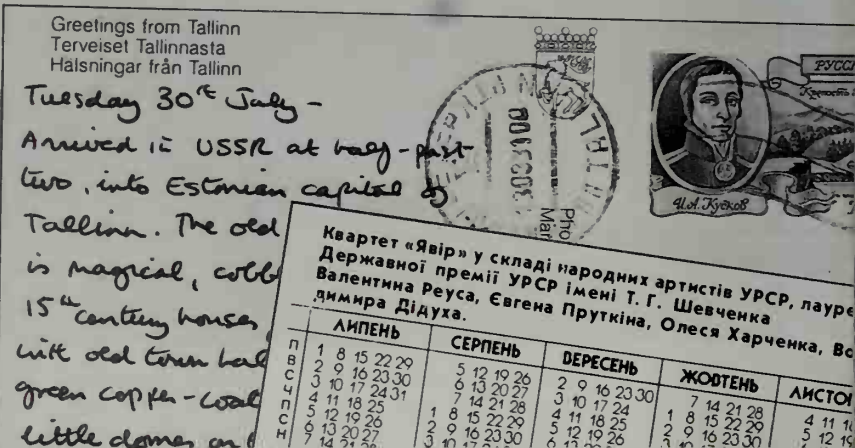 Greetings from Tallinn
Terveiset Tallinnasta
Hälsningar från Tallinn
Tuesday 30th July -
Arrived in USSR at half-past
two, into Estonian capital of
Tallinn. The old
is magical, cobb
15th century houses,
with old town hal
green copper-coat
little domes and
Pho
Mar
РУССК
Крепость
И.А. Кусков
Квартет «Явір» у складі народних артистів УРСР, лауре
Державної премії УРСР імені Т. Г. Шевченка
Валентина Реуса, Євгена Пруткіна, Олеся Харченка, Во
димира Дідуха.
ЛИПЕНЬ СЕРПЕНЬ ВЕРЕСЕНЬ ЖОВТЕНЬ ЛИСТОП
П 1 8 15 22 29 5 12 19 26 2 9 16 23 30 7 14 21 28 4 11 18
В 2 9 16 23 30 6 13 20 27 3 10 17 24 1 8 15 22 29 5 12 19
С 3 10 17 24 31 7 14 21 28 4 11 18 25 2 9 16 23 30
Ч 4 11 18 25 1 8 15 22 29 5 12 19 26
П 5 12 19 26 2 9 16 23 30
С 6 13 20 27
Н 7 14 21 28